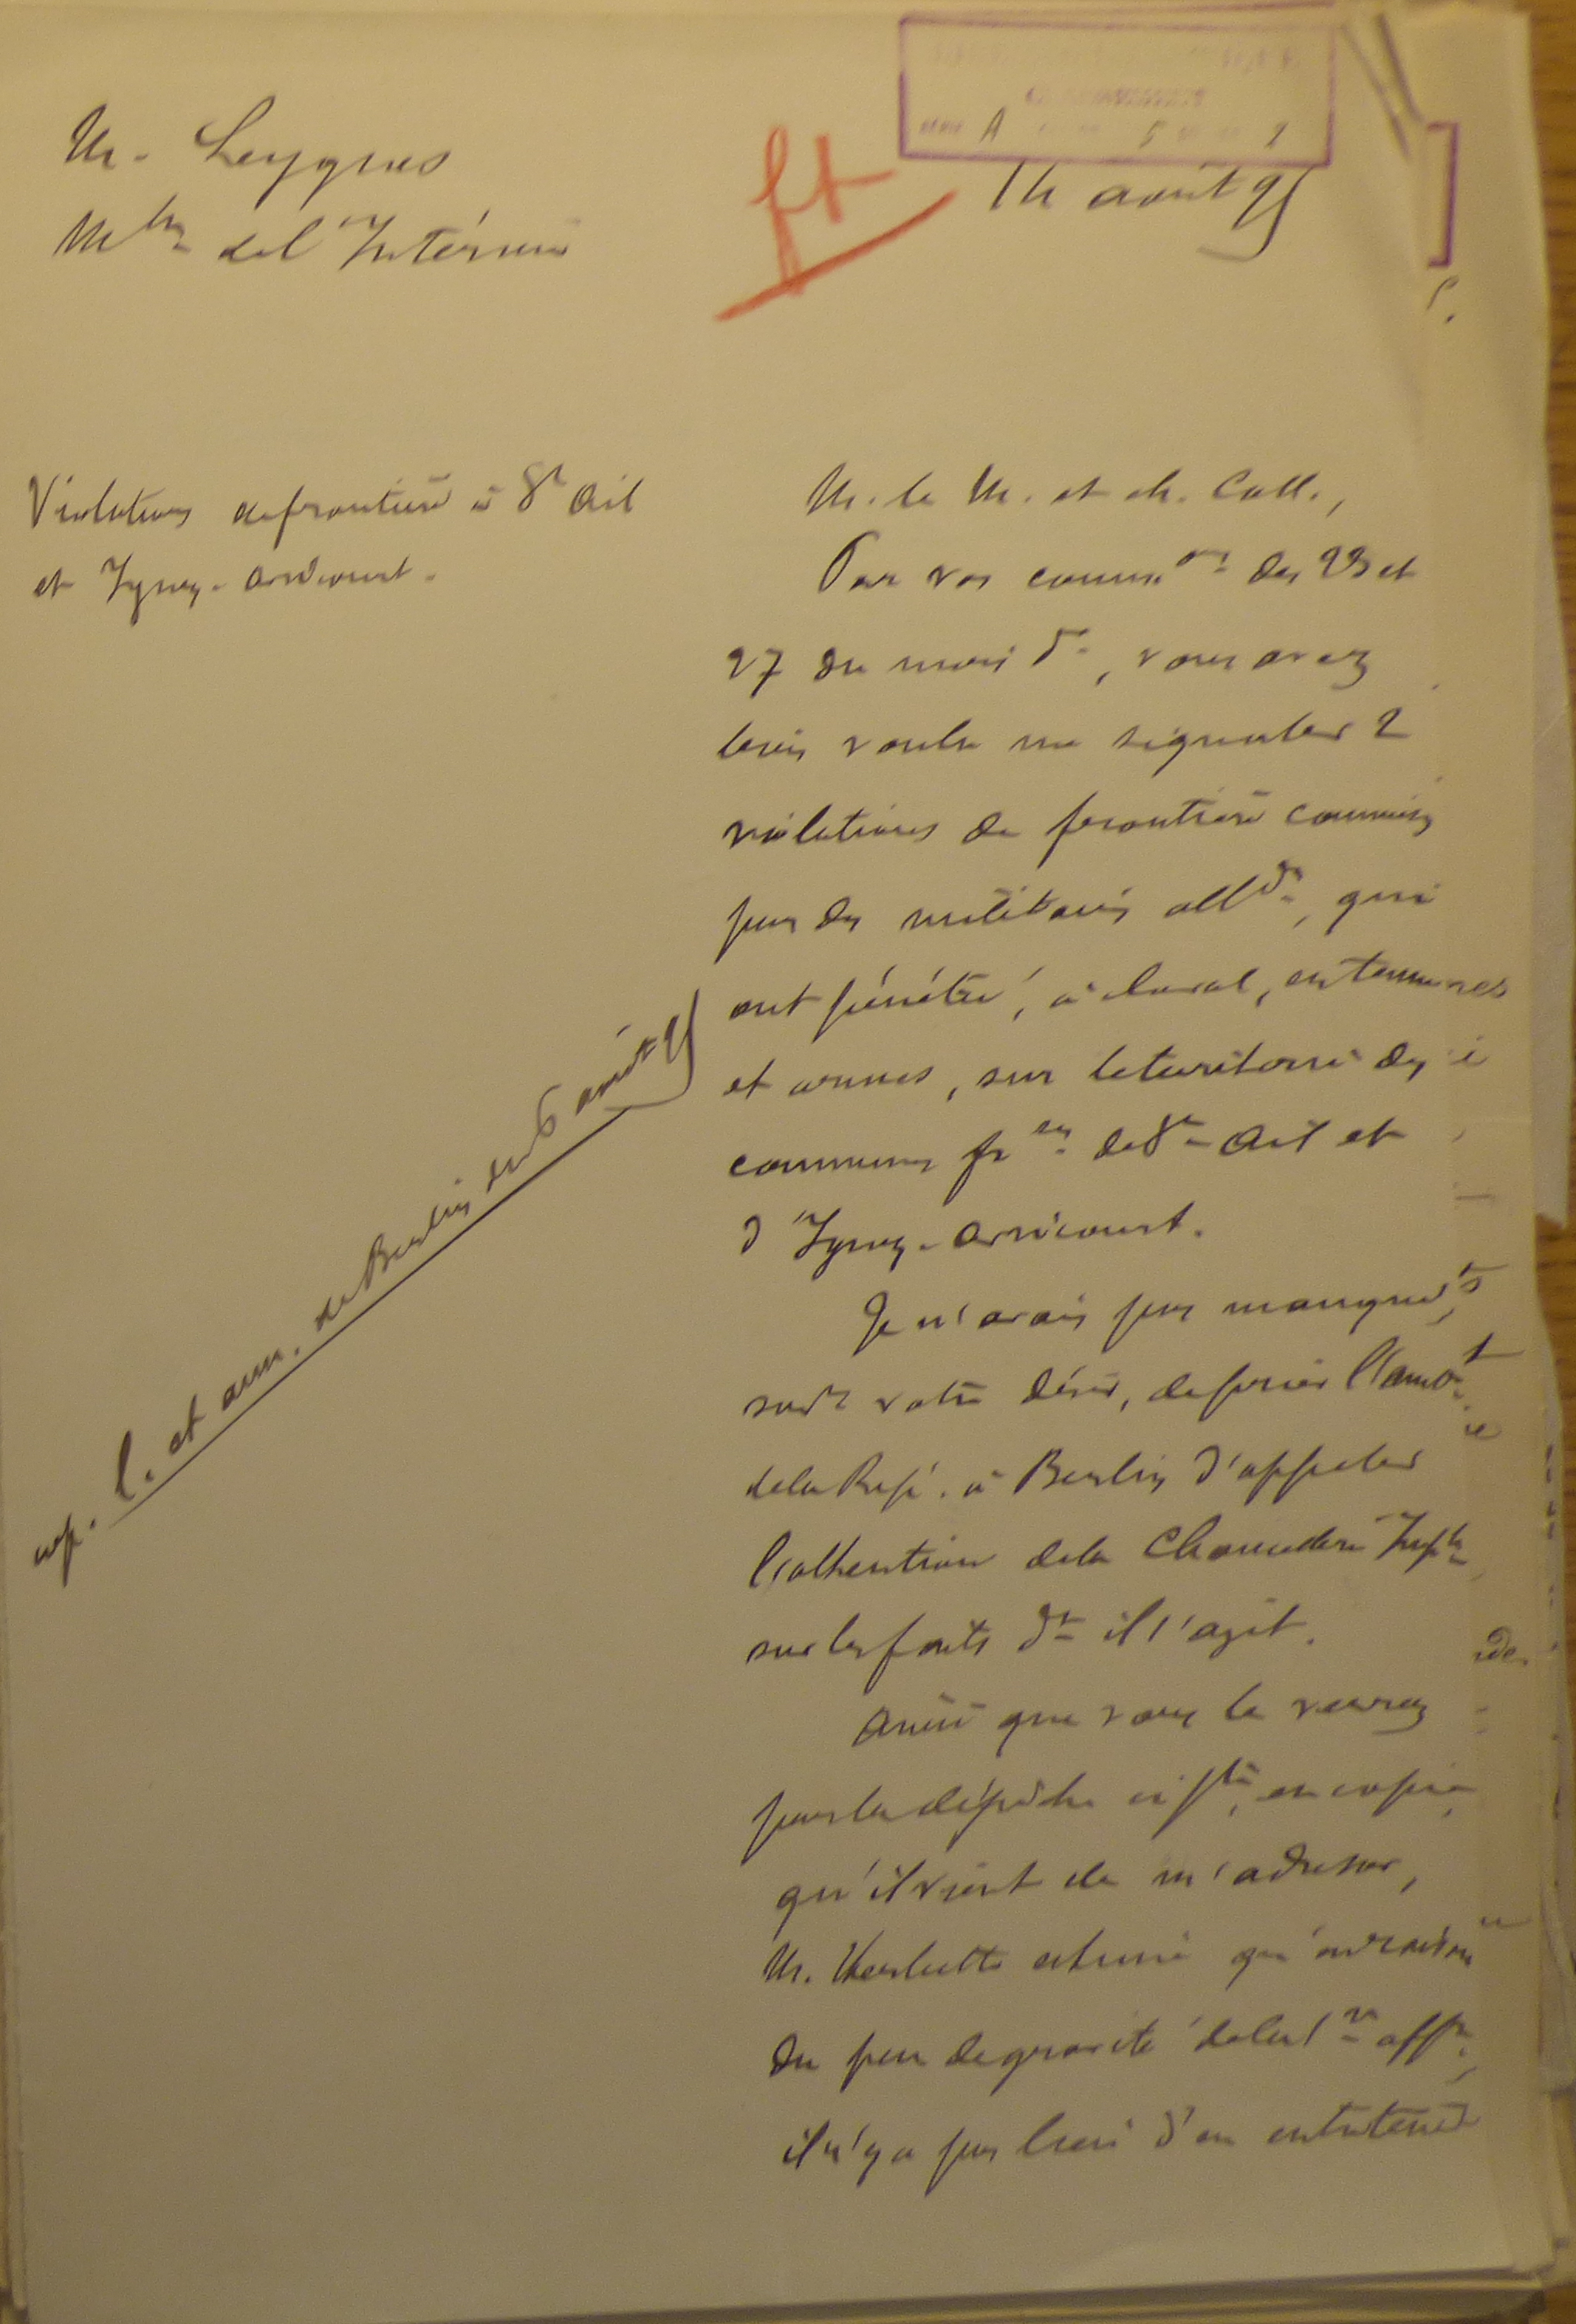 M. Leygues
M^tre de l'Intérieur
ft
14 août 95
Violations de frontière à S^t Ail
et Igney-Avricourt.
M. le M. et ch. Coll.,
Par vos comm^ons des 23 et
27 du mois d^r, vous avez
bien voulu me signaler 2
violations de frontière commises
par des militaires all^ds, qui
ont pénétré, à cheval, en tenues
et armes, sur le territoire des
communes fr^ses de S^t Ail et
d'Igney-Avricourt.
Je n'avais pas manqué,
suiv^t votre désir, de prier l'Amb^r
de la Rép. à Berlin d'appeler
l'attention de la Chancellerie Imp^le
sur les faits d^t il s'agit.
Ainsi que vous le verrez
par la dépêche ci j^te, en copie,
qu'il vient de m'adresser,
M. Herbette estime qu'en raison
du peu de gravité de la 1^re aff^re,
il n'y a pas lieu d'en entretenir
rép. l. et ann. de Berlin du 6 août 95